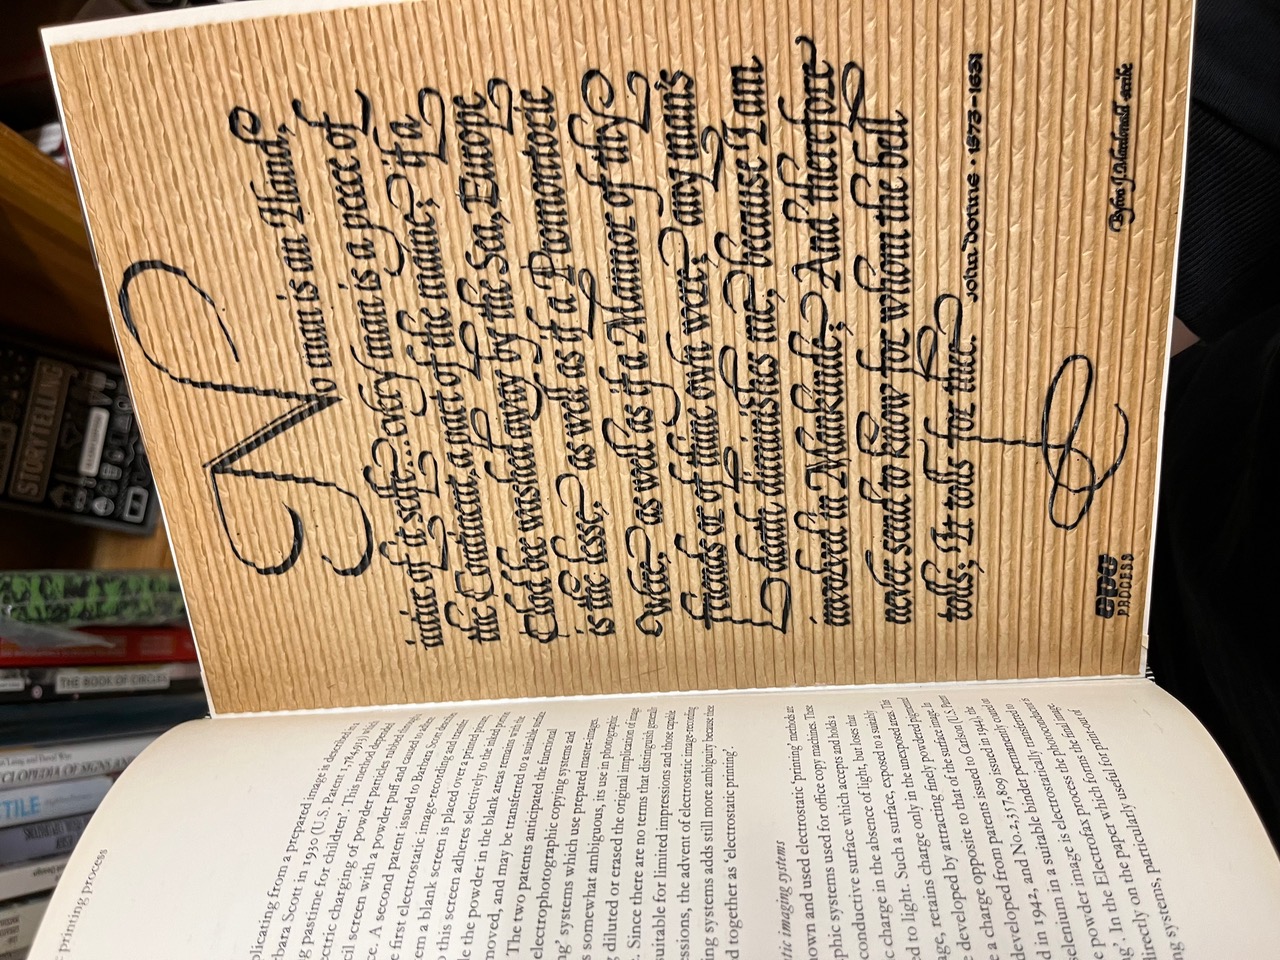 No man is an Iland,
intire of it selfe....every man is a peece of
the Continent, a part of the maine; if a
Clod bee washed away by the Sea, Europe
is the lesse, as well as if a Promontorie
were, as well as if a Mannor of thy
friends or of thine own were; any man's
death diminishes me, because I am
involved in Mankinde; And therefore
never send to know for whom the bell
tolls; It tolls for thee.
John Donne · 1573-1631
Byron J. Macdonald scribe
epc
PROCESS
printing process
plicating from a prepared image is described
bara Scott in 1930 (U.S. Patent 1,784,
pastime for children'. This method depended
ectric charging of powder particles rubbed through
cil screen with a powder puff and caused to adhere
ce. A second patent issued to Barbara Scott
first electrostatic image-recording and transfer
a blank screen is placed over a printed
this screen adheres selectively to the inked
the powder in the blank areas remains with the
moved, and may be transferred to a suitable surface
The two patents anticipated the functional
electrophotographic copying systems and
ing' systems which use prepared master-images.
somewhat ambiguous, its use in photographic
diluted or erased the original implication of
Since there are no terms that distinguish
suitable for limited impressions and those capable
essions, the advent of electrostatic image-recording
ing systems adds still more ambiguity because
d together as 'electrostatic printing'.
tic imaging systems
own and used electrostatic 'printing' methods are
phic systems used for office copy machines. These
conductive surface which accepts and holds a
charge in the absence of light, but loses that
ed to light. Such a surface, exposed to a suitably
age, retains charge only in the unexposed areas.
developed by attracting finely powdered
a charge opposite to that of the surface image. In
developed from patents issued to Carlson (U.S.
d in 1942, and No 2,357,809 issued in 1944),
selenium in a suitable binder permanently
powder image is electrostatically transferred to
ng'. In the Electrofax process the photoconductor is
directly on the paper which forms the final image
ng systems, particularly useful for print-out of
STORYTELLING
THE BOOK OF CIRCLES
CYCLOPEDIA OF SIGNS AN
TILE